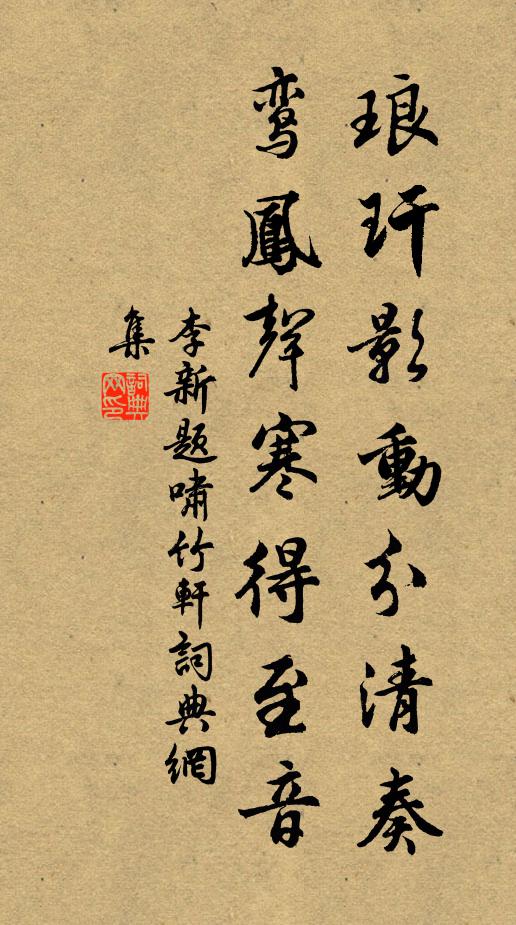 琅玕影動分清奏
鸾鳳聲寒得至音
李新题啸竹軒詞典網
集
詞典網印